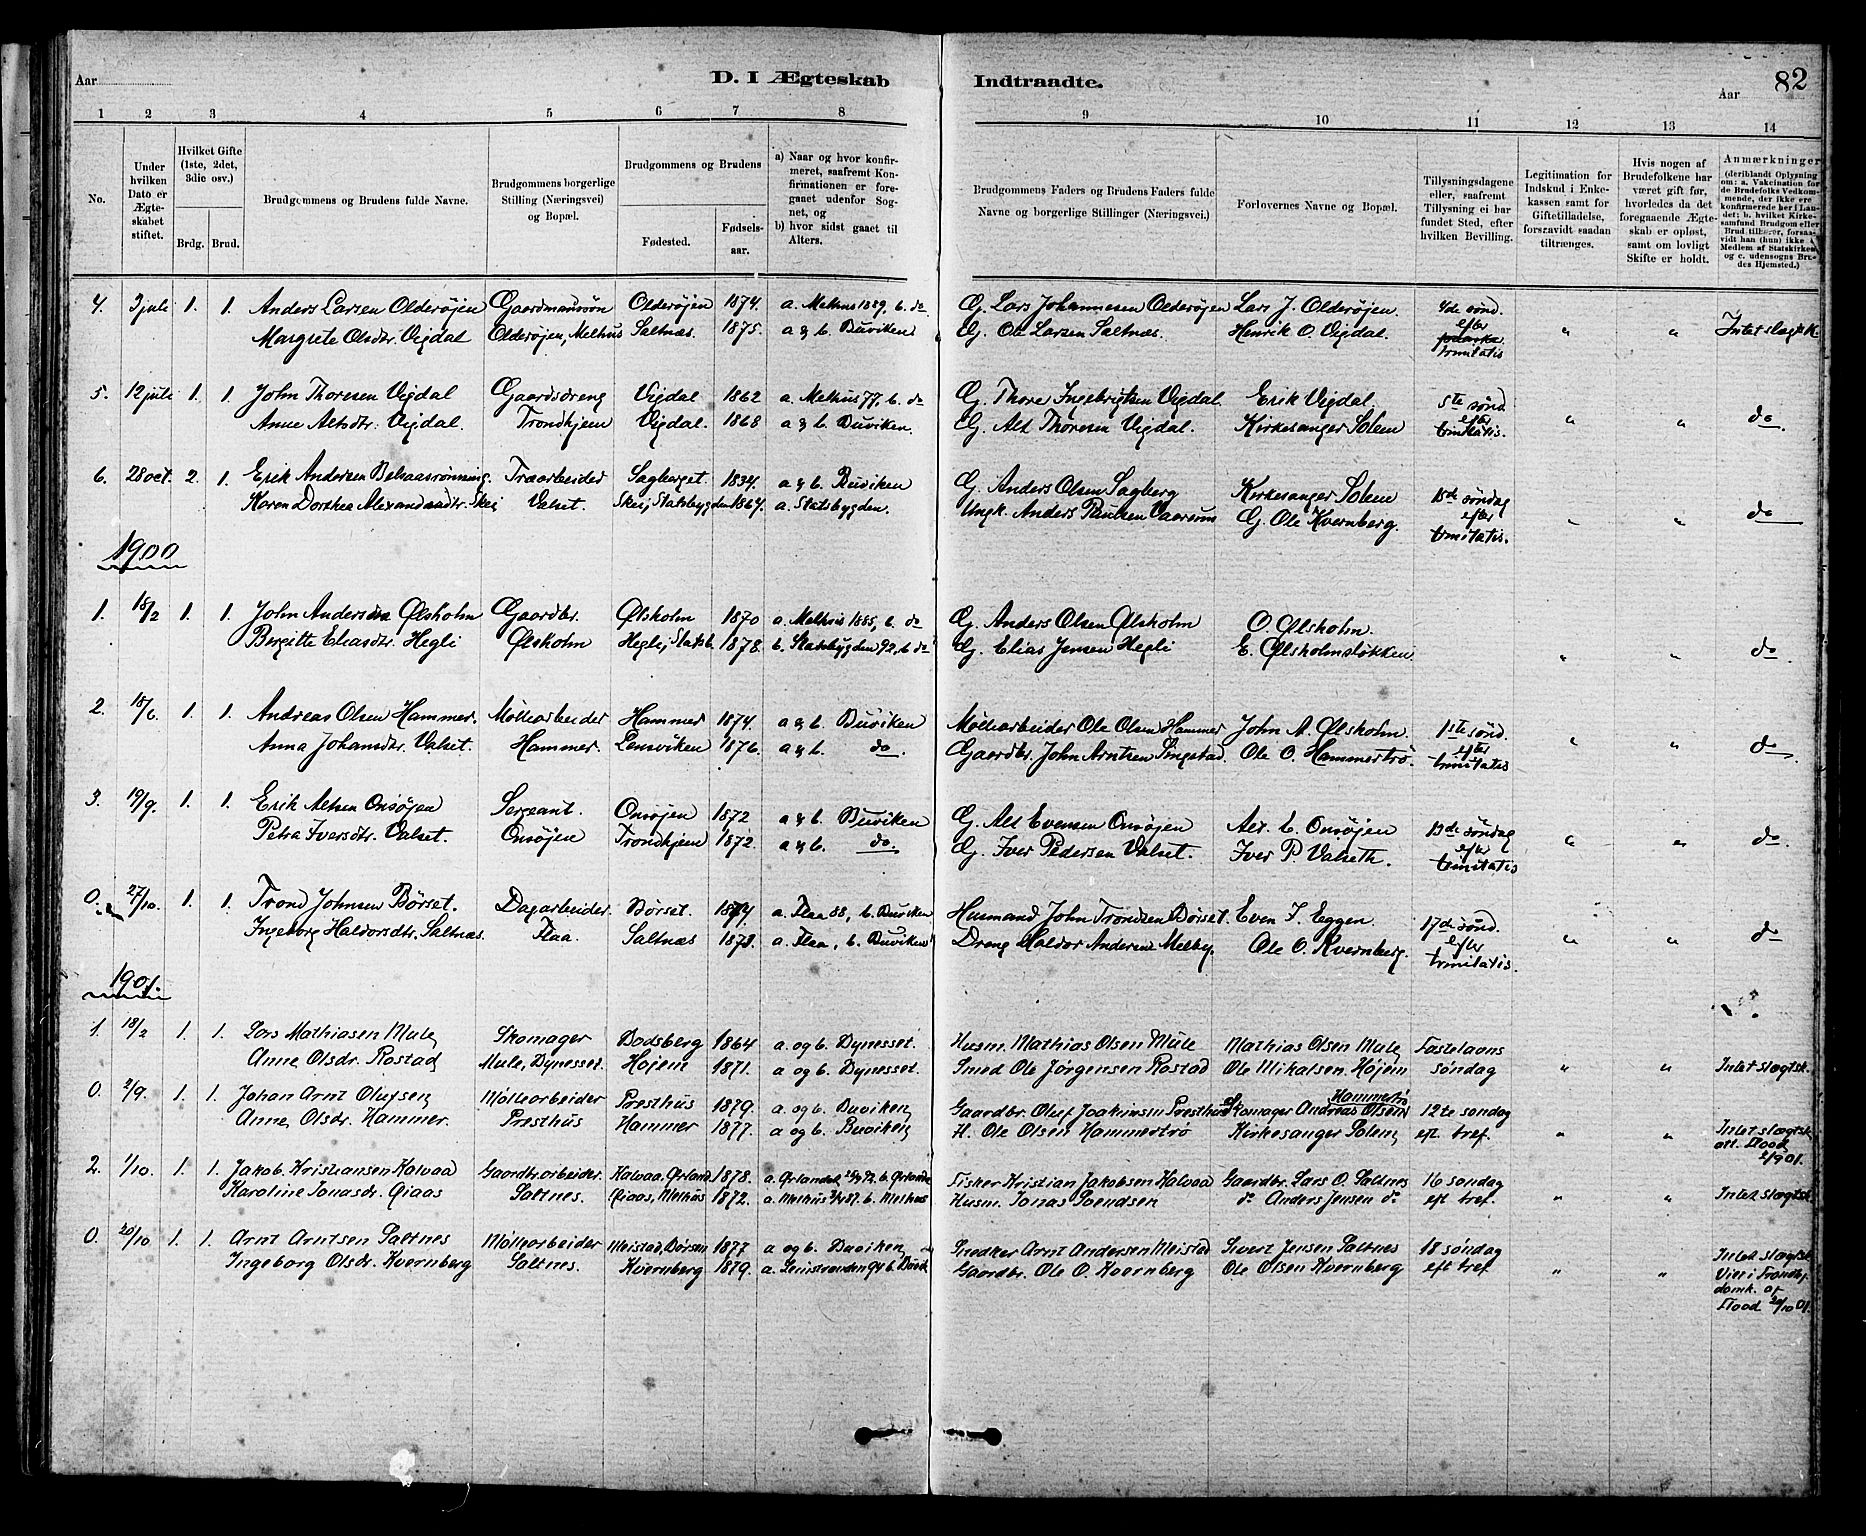 Aar
D. I Ægteskab
Indtraadte.
Aar
82
1 2 3 4 5 6 7 8 9 10 11 12 13 14
No.
Under hvilken Dato er Ægteskabet stiftet.
Hvilket Gifte (1ste, 2det, 3die osv.)
Brdg. Brud.
Brudgommens og Brudens fulde Navne.
Brudgommens borgerlige Stilling (Næringsvei) og Bopæl.
Brudgommens og Brudens
Fødested.
Fødselsaar.
a) Naar og hvor konfirmeret, saafremt Konfirmationen er foregaaet udenfor Sognet, og
b) hvor sidst gaaet til Alters.
Brudgommens Faders og Brudens Faders fulde Navne og borgerlige Stillinger (Næringsvei.)
Forlovernes Navne og Bopæl.
Tillysningsdagene eller, saafremt Tillysning ei har fundet Sted, efter hvilken Bevilling.
Legitimation for Indskud i Enkekassen samt for Giftetilladelse, forsaavidt saadan tiltrænges.
Hvis nogen af Brudefolkene har været gift før, hvorledes da det foregaaende Ægteskab er opløst, samt om lovligt Skifte er holdt.
Anmærkninger (deriblandt Oplysning om: a. Vakcination for de Brudefolks Vedkommende, der ikke ere konfirmerede her i Landet; b. hvilket Kirkesamfund Brudgom eller Brud tilhører, forsaavidt han (hun) ikke er Medlem af Statskirken og c. udensogns Brudes Hjemsted.)
4. 3 juli 1. 1. Anders Larsen Olderøjen Gaardmandssøn Olderøjen 1874. a. Melhus 1889, b. do G. Lars Johannesen Olderøjen Lars J. Olderøjen. 4de sønd.
Margrete Olsdtr. Vigdal Olderøjen, Melhus Saltnæs. 1875. a & b. Buviken G. Ole Larsen Saltnæs. Henrik O. Vigdal. efter trinitatis " " Intet slægtsk.
5. 12 juli 1. 1. John Thoresen Vigdal Gaardsdreng Vigdal 1862 a. Melhus 77, b. do G. Thore Ingebrigtsen Vigdal. Erik Vigdal. 5te sønd.
Anne Altsdtr. Vigdal. Trondhjem Vigdal. 1868 a & b. Buviken. G. Alt Thoresen Vigdal. Kirkesanger Solem efter trinitatis. " " do
6. 28 oct. 2. 1. Erik Andersen Belsaasrønning. Træarbeider Sagberget 1834. a & b. Buviken G. Anders Olsen Sagberg Kirkesanger Solem 18de søndag
Karen Dorthea Alexandersdtr. Skei Valset. Skei, Stadsbygden 1867. a. Stadsbygden. Ungk. Anders Paulsen Vaarum G. Ole Kvernberg. efter trinitatis. " " do
1900
1. 18/2 1. 1. John Andersen Ølsholm Gaardbr. Ølsholm 1870 a. Melhus 1885, b. do G. Anders Olsen Ølsholm O Ølsholm.
Bergitte Eliasdtr. Hegli Ølsholm Hegli, Stadsb. 1878. b. Stadsbygden 92, b do G. Elias Jensen Hegli E. Ølsholmsløkken. " " do
2. 18/6. 1. 1. Andreas Olsen Hammer. Møllearbeider Hammer 1874. a & b. Buviken Møllearbeider Ole Olsen Hammer John A. Ølsholm. 1ste sønd.
Anna Johansdtr. Valset. Hammer. Lensviken 1876. a & b. do. Gaardbr. John Arntsen Singstad. Ole O. Hammertrø. efter trinitatis " " do
3. 19/9. 1. 1. Erik Altsen Onsøjen Sergeant. Onsøjen 1872 a & b. Buviken G. Alt Evensen Onsøjen Alt. E. Onsøjen 13de søndag
Petra Iversdtr. Valset. Onsøjen Trondhjem 1872. a & b. do. G. Iver Pedersen Valset. Iver P Valseth. efter trinitatis " " do.
0. 27/10. 1. 1. Trond Johnsen Børset. Dagarbeider. Børset. 1874 a. Flaa 88, b. Buviken Husmand John Trondsen Børset. Even I. Eggen. 17de sønd.
Ingeborg Haldorsdtr. Saltnæs. Flaa. Saltnæs 1878. a. Flaa, b. Buviken Dreng Haldor Andersen Melby. Ole O. Kvernberg. efter trinitatis. " " do
1901.
1. 18/2 1. 1. Lars Mathiasen Mule Skomager Bodsberg 1864 a. og b. Bynesset. Husm. Mathias Olsen Mule Mathias Olsen Mule Fastelavns
Anne Olsdr. Rostad Mule, Bynesset. Høiem 1871. a og b. Bynesset. Smed Ole Jørgensen Rostad Ole Mikalsen Høiem søndag " " Intet slægtsk.
0. 2/9. 1. 1. Johan Arnt Olufsen Møllearbeider Presthus 1879. a. og b. Buviken Gaardbr. Oluf Joakimsen Presthus Skomager Andreas Olsen Hammertrø 12te søndag
Anne Olsdr. Hammer. Presthus Hammer 1877. a og b. Buviken H. Ole Olsen Hammertrø Kirkesanger Solem eft tref. " " Intet slægtsk. att. Stood 2/901.
2. 1/10. 1. 1. Jakob Kristiansen Kalvaa Gaardbr.arbeider. Kalvaa, Ørland 1878. a. Ørlandet b. Ørlandet Fisker Kristian Jakobsen Kalvaa Gaardbr. Lars O. Saltnes 16 søndag
Karoline Jonasdr. Qiaas Saltnes. Qiaas, Melhus 1872. a. Melhus b. Melhus Husm. Jonas Svendsen do Anders Jensen do eft tref. " " Intet slægtsk.
0. 20/10 1. 1. Arnt Arntsen Saltnes Møllearbeider Meistad, Børsen 1877 a og b. Buviken Snedker Arnt Andersen Meistad Sivert Jensen Saltnes 18 søndag
Ingeborg Olsdr. Kvernberg Saltnes. Kvernberg 1879. a. b. Buvik Gaardbr. Ole O. Kvernberg Ole Olsen Kvernberg eft tref. " " Intet slægtsk. Viet i Trondhj. domk. Stood 20/10 01.